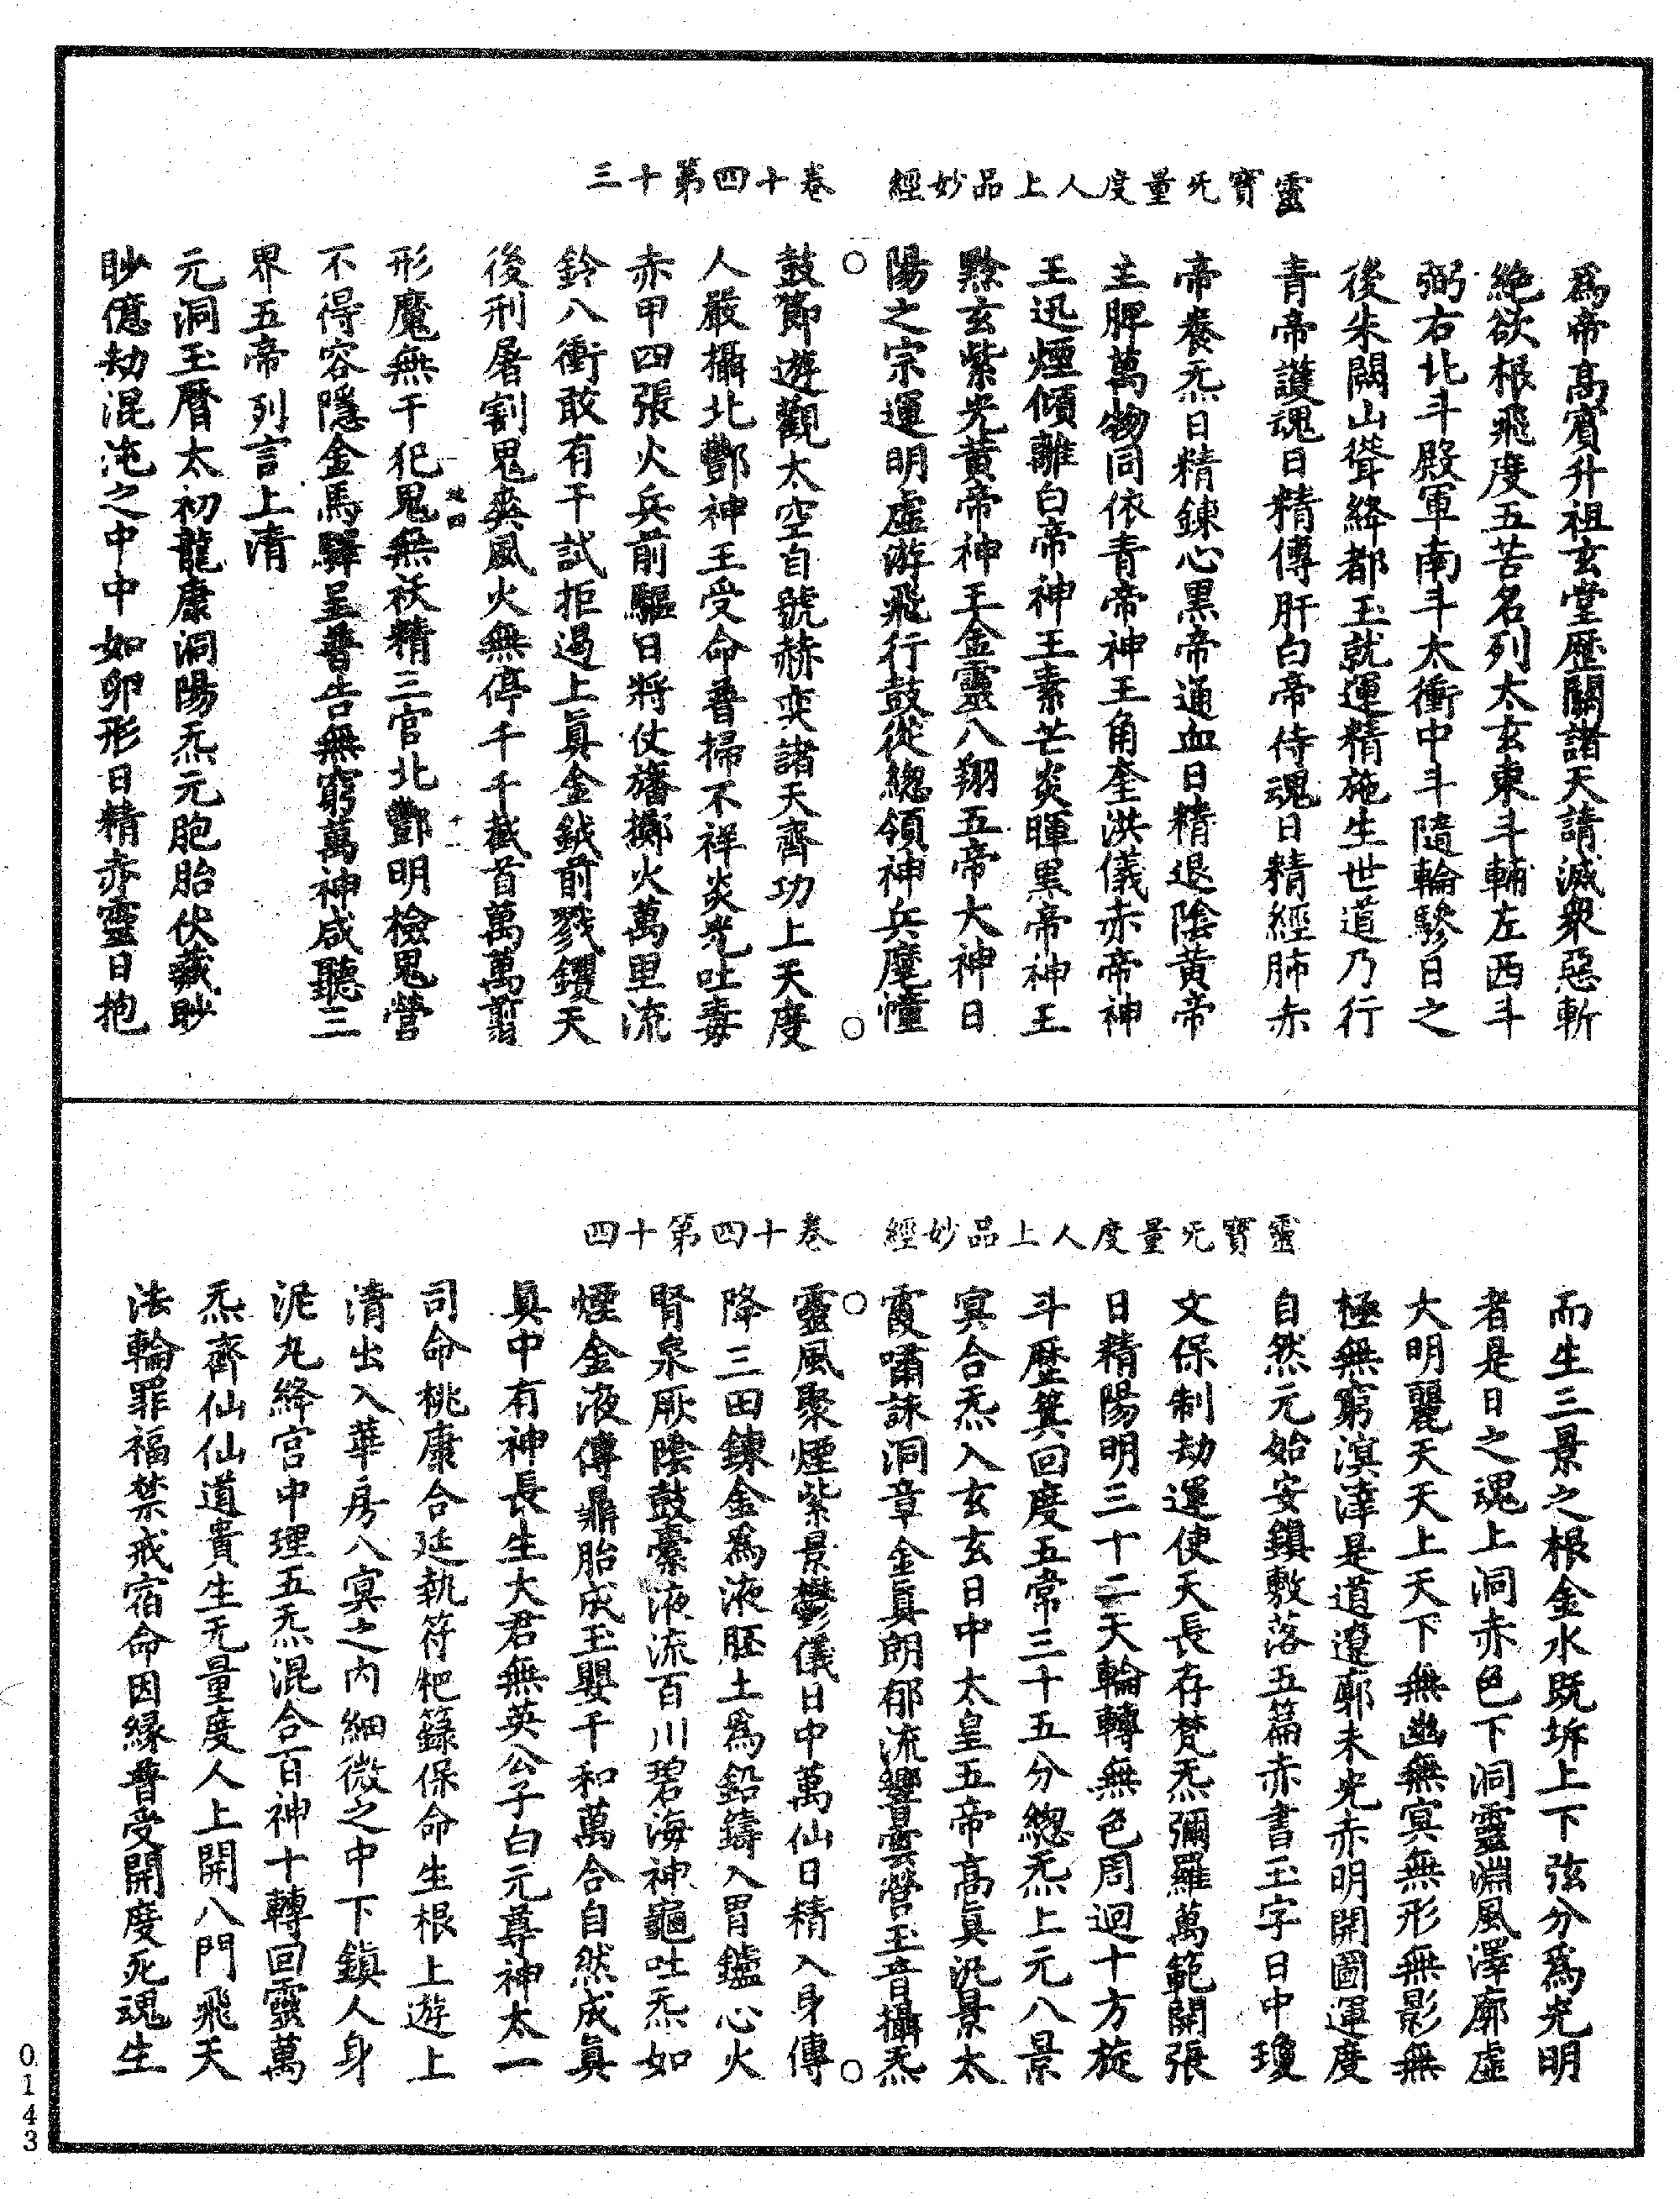 靈寶旡量度人上品妙經　卷十四第十三
為帝高賓升祖玄堂歷關諸天請滅眾惡斬
絕欲根飛度五苦名列太玄東斗輔左西斗
弼右北斗殿軍南斗太衝中斗隨輪驂日之
後朱闕山聳絳都玉就運精施生世道乃行
青帝護魂日精傳肝白帝侍魂日精經肺赤
帝養炁日精鍊心黑帝通血日精退陰黃帝
主脾萬物同依青帝神王角奎洪儀赤帝神
王迅煙傾離白帝神王素芒炎暉黑帝神王
黔玄紫光黃帝神王金靈八翔五帝大神日
陽之宗運明虛游飛行鼓從總領神兵麾幢
鼓節遊觀太空自號赫奕諸天齊功上天度
人嚴攝北酆神王受命普掃不祥炎光吐毒
赤甲四張火兵前驅日將仗旛擲火萬里流
鈴八衝敢有干試拒遏上真金鉞前戮钁天
後刑屠割鬼㷼風火無停千千截首萬萬翦
形魔無干犯鬼無祅精三官北酆明檢鬼營
不得容隱金馬驛呈普告無窮萬神咸聽三
界五帝列言上清
元洞玉曆太初龍康洞陽炁元胞胎伏藏眇
眇億劫混沌之中中如卵形日精赤靈日抱
靈寶旡量度人上品妙經　卷十四第十四
而生三景之根金水既坼上下弦分為光明
者是日之魂上洞赤色下洞靈淵風澤廓虛
大明麗天天上天下無幽無冥無形無影無
極無窮溟涬是道遼廓未光赤明開圖運度
自然元始安鎮敷落五篇赤書玉字日中瓊
文保制劫運使天長存梵炁彌羅萬範開張
日精陽明三十二天輪轉無色周迴十方旋
斗歷箕回度五常三十五分總炁上元八景
冥合炁入玄玄日中太皇五帝高真汎景太
霞嘯詠洞章金真朗郁流響雲營玉音攝炁
靈風聚煙紫景鬱儀日中萬仙日精入身傳
降三田鍊金為液胚土為鉛鑄入胃鑪心火
腎泉厥陰鼓橐液流百川碧海神龜吐炁如
煙金液傳鼎胎成玉嬰千和萬合自然成真
真中有神長生大君無英公子白元尊神太一
司命桃康合延執符把籙保命生根上遊上
清出入華房八冥之內細微之中下鎮人身
泥丸絳宮中理五炁混合百神十轉回靈萬
炁齊仙仙道貴生无量度人上開八門飛天
法輪罪福禁戒宿命因緣普受開度死魂生
0143